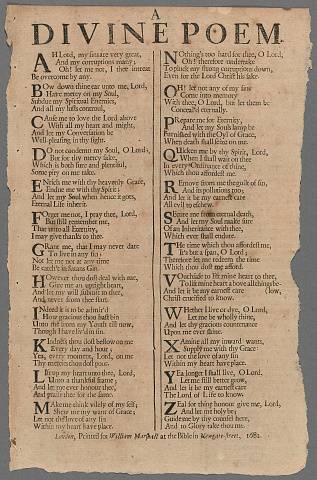 A
DIVINE POEM.
AH Lord, my sins are very great,
And my corruptions many;
Oh! let me not, I thee intreat
Be overcome by any.
BOw down thine ear unto me, Lord,
Have mercy on my Soul,
Subdue my Spiritual Enemies,
And all my lusts controul,
CAuse me to love the Lord above
With all my heart and might,
And let my Conversation be
Well-pleasing in thy sight.
DO not condemn my Soul, O Lord,
But for thy mercy sake,
Which is both sure and plentiful,
Some pity on me take.
ENrich me with thy heavenly Grace,
Endue me with thy Spirit;
And let my Soul when hence it goes,
Eternal Life inherit.
FOrget me not, I pray thee, Lord,
But still remember me,
That unto all Eternity,
I may give thanks to thee.
GRant me, that I may never dare
To live in any sin;
Nor let me not at any time
Be catch't in Satans Gin.
HOwever thou dost deal with me,
Give me an upright heart,
And let my will submit to thee,
And never from thee start.
INdeed it is to be admir'd
How gracious thou hast bin
Unto me from my Youth till now,
Though I have liv'd in sin.
KIndness thou dost bestow on me
Every day and hour;
Yea, every moment, Lord, on me
Thy mercies thou dost pour.
LIft up my heart unto thee, Lord,
Unto a thankful frame;
And let me ever honour thee,
And praise thee for the same.
MAke me think vilely of my self;
Shew me my want of Grace;
Let not the love of any sin
Within my heart have place.
NOthing's too hard for thee, O Lord,
Oh! therefore undertake
To pluck my strong corruptions down,
Even for the Lord Christ his sake.
OH! let not any of my sins
Come into memory
With thee, O Lord, but let them be
Conceal'd eternally.
PRepare me for Eternity,
And let my Souls lamp be
Furnished with the Oyl of Grace,
When death shall seize on me.
QUicken me by thy Spirit, Lord,
When I shall wait on thee
In every Ordinance of thine,
Which thou affordest me.
REmove from me the guilt of sin,
And its pollution too;
And let it be my earnest care
All evil to eschew.
SEcure me from eternal death,
And let my Soul make sure
Of an Inheritance with thee,
Which ever shall endure.
THe time which thou affordest me,
It's but a span, O Lord;
Therefore let me redeem the time
Which thou dost me afford.
VOuchsafe to lift mine heart to thee,
To lift mine heart above all things be-
And let it be my earnest care (low,
Christ crucified to know.
WHether I live or dye, O Lord,
Let me be wholly thine;
And let thy gracious countenance
Upon me ever shine.
XAmine all my inward wants,
Supply me with thy Grace:
Let not the love of any sin
Within my heart have place.
YEa longer I shall live, O Lord,
Let me still better grow,
And let it be my earnest care
The Lord of Life to know.
ZEal for thing honour give me, Lord,
And let me holy be;
Guide me by thy counsel here,
And to Glory take thou me.
London, Printed for William Marshall at the Bible in Newgate-street, 1682.